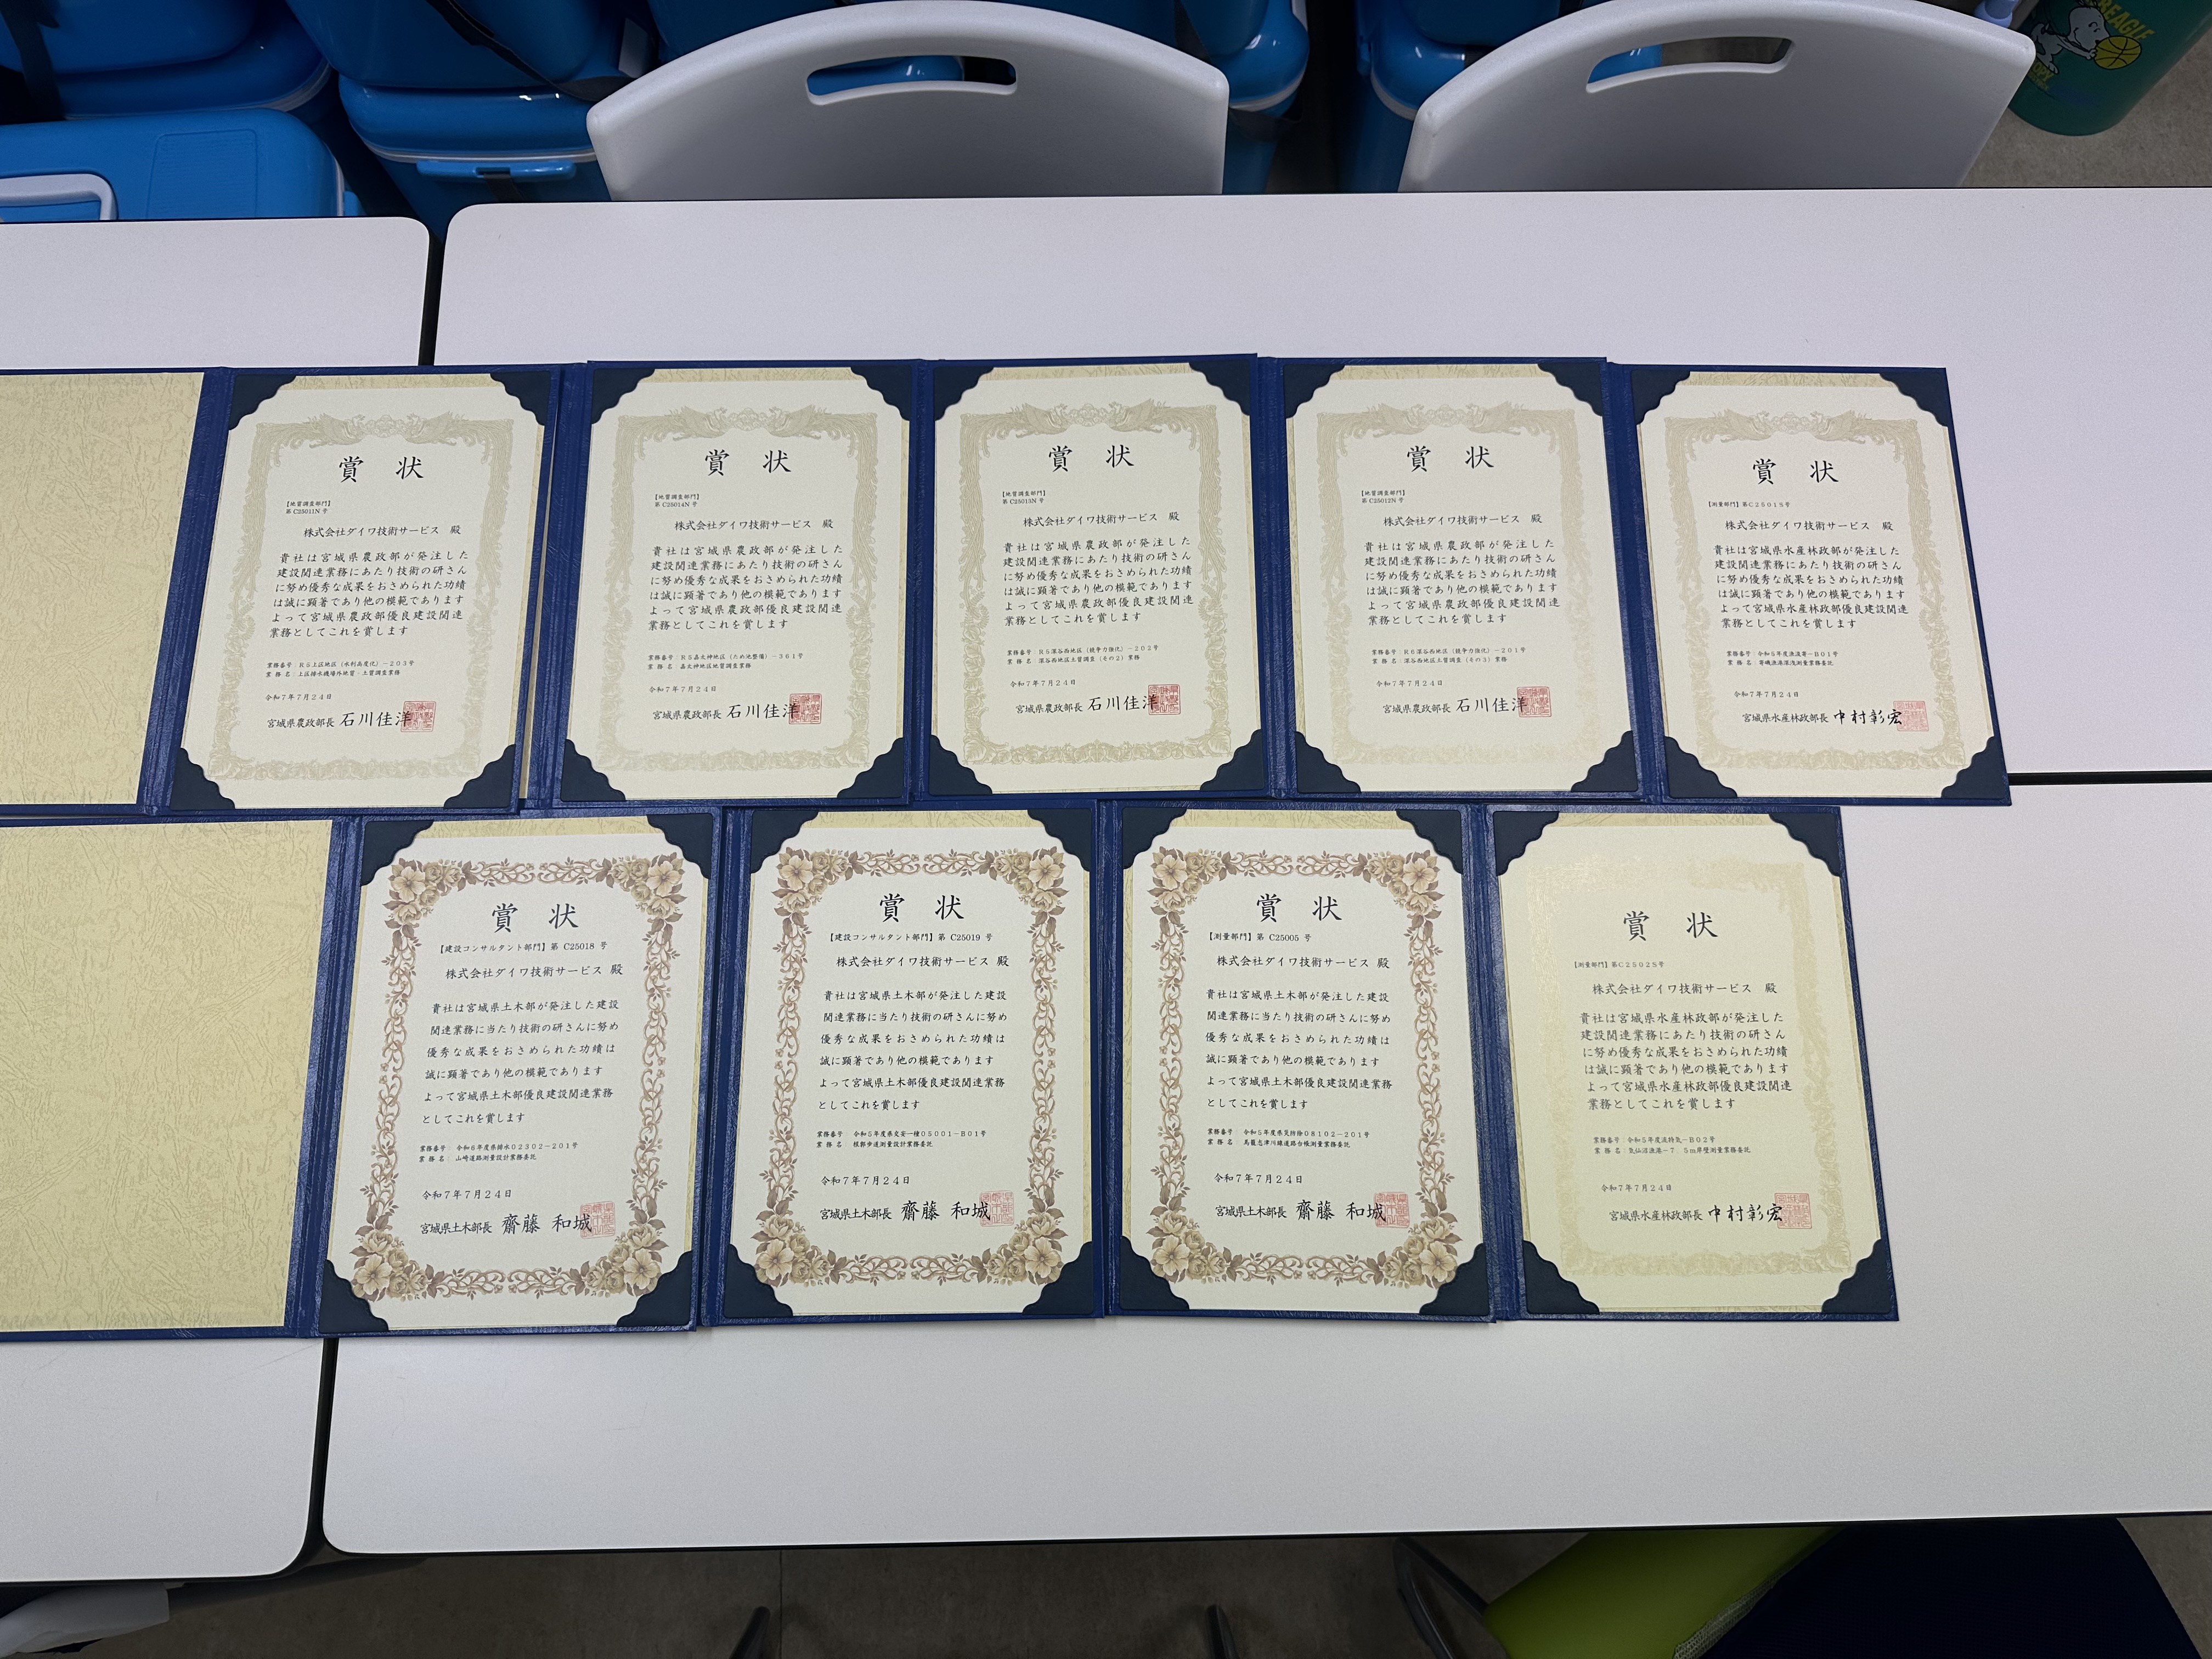 BEAGLE
賞 状
【地質調査部門】
第C25011N号
株式会社ダイワ技術サービス 殿
貴社は宮城県農政部が発注した
建設関連業務にあたり技術の研さん
に努め優秀な成果をおさめられた功績
は誠に顕著であり他の模範であります
よって宮城県農政部優良建設関連
業務としてこれを賞します
業務番号:R5上区地区(水利高度化)-203号
業 務 名:上区排水機場外地質・土質調査業務
令和7年7月24日
宮城県農政部長 石川佳洋
賞 状
【地質調査部門】
第C25014N号
株式会社ダイワ技術サービス 殿
貴社は宮城県農政部が発注した
建設関連業務にあたり技術の研さん
に努め優秀な成果をおさめられた功績
は誠に顕著であり他の模範であります
よって宮城県農政部優良建設関連
業務としてこれを賞します
業務番号:R5嘉太神地区(ため池整備)-361号
業 務 名:嘉太神地区地質調査業務
令和7年7月24日
宮城県農政部長 石川佳洋
賞 状
【地質調査部門】
第C25013N号
株式会社ダイワ技術サービス 殿
貴社は宮城県農政部が発注した
建設関連業務にあたり技術の研さん
に努め優秀な成果をおさめられた功績
は誠に顕著であり他の模範であります
よって宮城県農政部優良建設関連
業務としてこれを賞します
業務番号:R5深谷西地区(競争力強化)-202号
業 務 名:深谷西地区土質調査(その2)業務
令和7年7月24日
宮城県農政部長 石川佳洋
賞 状
【地質調査部門】
第C25012N号
株式会社ダイワ技術サービス 殿
貴社は宮城県農政部が発注した
建設関連業務にあたり技術の研さん
に努め優秀な成果をおさめられた功績
は誠に顕著であり他の模範であります
よって宮城県農政部優良建設関連
業務としてこれを賞します
業務番号:R6深谷西地区(競争力強化)-201号
業 務 名:深谷西地区土質調査(その3)業務
令和7年7月24日
宮城県農政部長 石川佳洋
賞 状
【測量部門】第C2501S号
株式会社ダイワ技術サービス 殿
貴社は宮城県水産林政部が発注した
建設関連業務にあたり技術の研さん
に努め優秀な成果をおさめられた功績
は誠に顕著であり他の模範であります
よって宮城県水産林政部優良建設関連
業務としてこれを賞します
業務番号:令和5年度漁浚寄-B01号
業 務 名:寄磯漁港深浅測量業務委託
令和7年7月24日
宮城県水産林政部長 中村彰宏
賞 状
【建設コンサルタント部門】第 C25018 号
株式会社ダイワ技術サービス 殿
貴社は宮城県土木部が発注した建設
関連業務に当たり技術の研さんに努め
優秀な成果をおさめられた功績は
誠に顕著であり他の模範であります
よって宮城県土木部優良建設関連業務
としてこれを賞します
業務番号: 令和6年度県排水02302-201号
業 務 名: 山崎道路測量設計業務委託
令和7年7月24日
宮城県土木部長 齋藤 和城
賞 状
【建設コンサルタント部門】第 C25019 号
株式会社ダイワ技術サービス 殿
貴社は宮城県土木部が発注した建設
関連業務に当たり技術の研さんに努め
優秀な成果をおさめられた功績は
誠に顕著であり他の模範であります
よって宮城県土木部優良建設関連業務
としてこれを賞します
業務番号 令和5年度県交安一種05001-B01号
業 務 名 根郭歩道測量設計業務委託
令和7年7月24日
宮城県土木部長 齋藤 和城
賞 状
【測量部門】第 C25005 号
株式会社ダイワ技術サービス 殿
貴社は宮城県土木部が発注した建設
関連業務に当たり技術の研さんに努め
優秀な成果をおさめられた功績は
誠に顕著であり他の模範であります
よって宮城県土木部優良建設関連業務
としてこれを賞します
業務番号: 令和5年度県災防除08102-201号
業 務 名: 馬籠志津川線道路台帳測量業務委託
令和7年7月24日
宮城県土木部長 齋藤 和城
賞 状
【測量部門】第C2502S号
株式会社ダイワ技術サービス 殿
貴社は宮城県水産林政部が発注した
建設関連業務にあたり技術の研さん
に努め優秀な成果をおさめられた功績
は誠に顕著であり他の模範であります
よって宮城県水産林政部優良建設関連
業務としてこれを賞します
業務番号:令和5年度波特気-B02号
業 務 名:気仙沼漁港-7.5m岸壁測量業務委託
令和7年7月24日
宮城県水産林政部長 中村彰宏